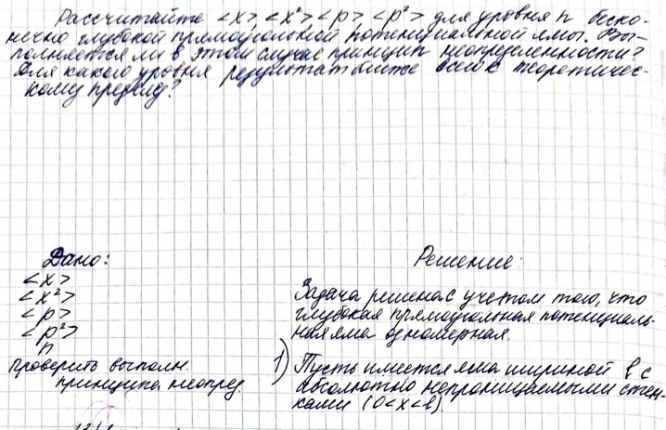 Рассчитайте <x>, <x²> <p>, <p²> для уровня n беско-
нечно глубокой прямоугольной потенциальной ямы. Вы-
полняется ли в этом случае принцип неопределенности?
Для какого уровня результат ближе всего к теоретичес-
кому пределу?
Дано:
<x>
<x²>
<p>
<p²>
n
проверить выполн.
принципа неопред.
Решение:
Задача решена с учетом того, что
глубокая прямоугольная потенциаль-
ная яма одномерная.
1) Пусть имеется яма шириной l с
абсолютно непроницаемыми стен-
ками (0<x<l)